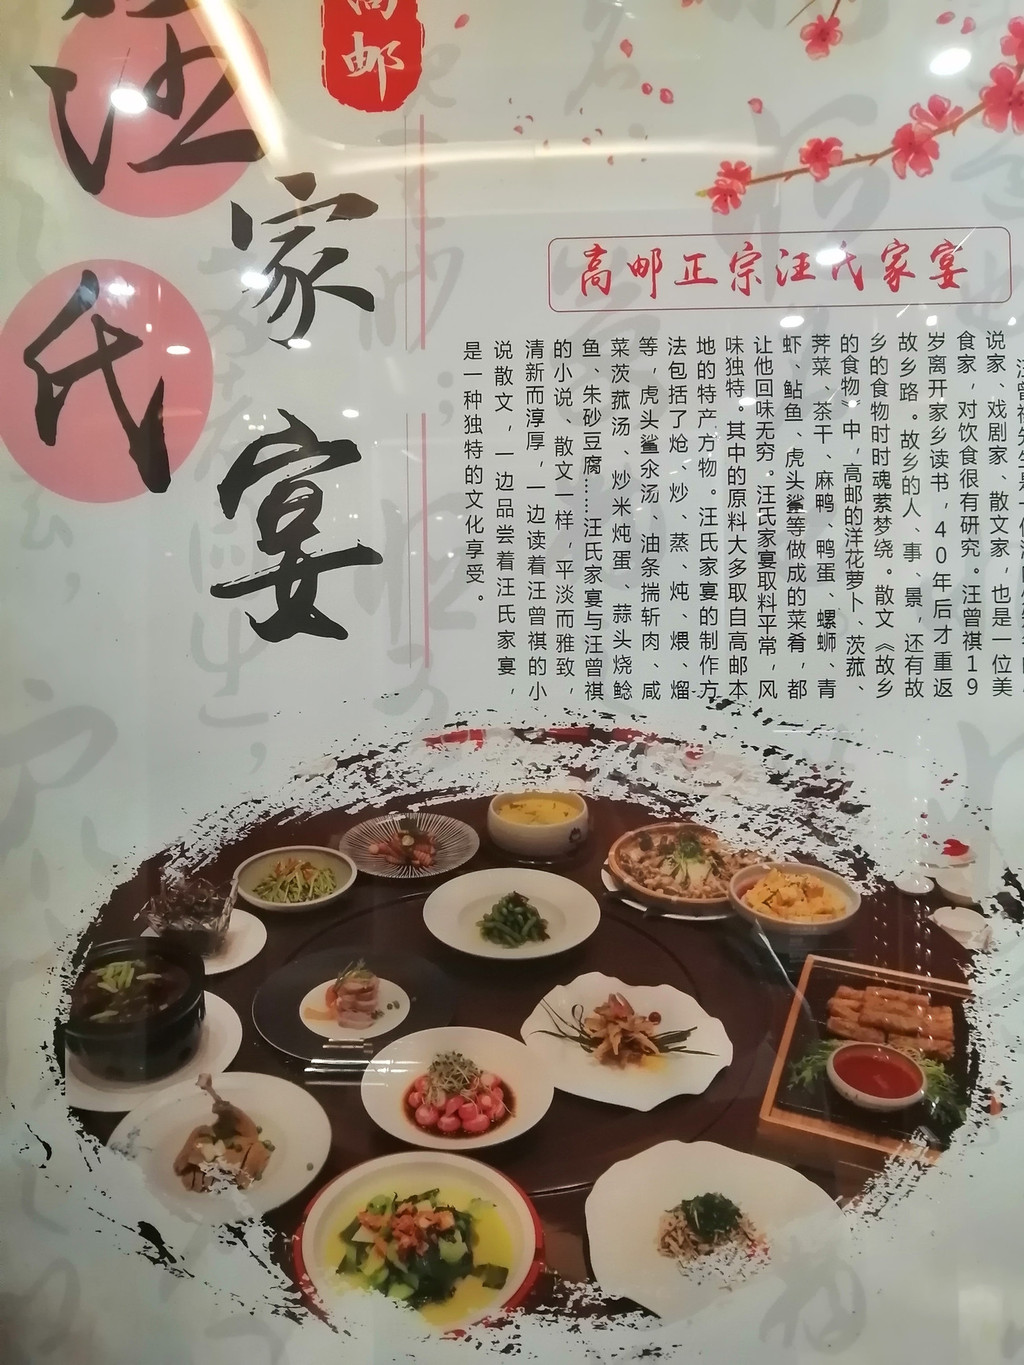 高邮
汪氏
家宴
高邮正宗汪氏家宴
说家、戏剧家、散文家，也是一位美
食家，对饮食很有研究。汪曾祺19
岁离开家乡读书，40年后才重返
故乡路。故乡的人、事、景，还有故
乡的食物时时魂萦梦绕。散文《故乡
的食物》中，高邮的洋花萝卜、茨菰、
荠菜、茶干、麻鸭、鸭蛋、螺蛳、青
虾、鲇鱼、虎头鲨等做成的菜肴，都
让他回味无穷。汪氏家宴取料平常，风
味独特。其中的原料大多取自高邮本
地的特产方物。汪氏家宴的制作方
法包括了炝、炒、蒸、炖、煨、熘
等，虎头鲨汆汤、油条揣斩肉、咸
菜茨菰汤、炒米炖蛋、蒜头烧鲶
鱼、朱砂豆腐……汪氏家宴与汪曾祺
的小说、散文一样，平淡而雅致，
清新而淳厚，一边读着汪曾祺的小
说散文，一边品尝着汪氏家宴，
是一种独特的文化享受。